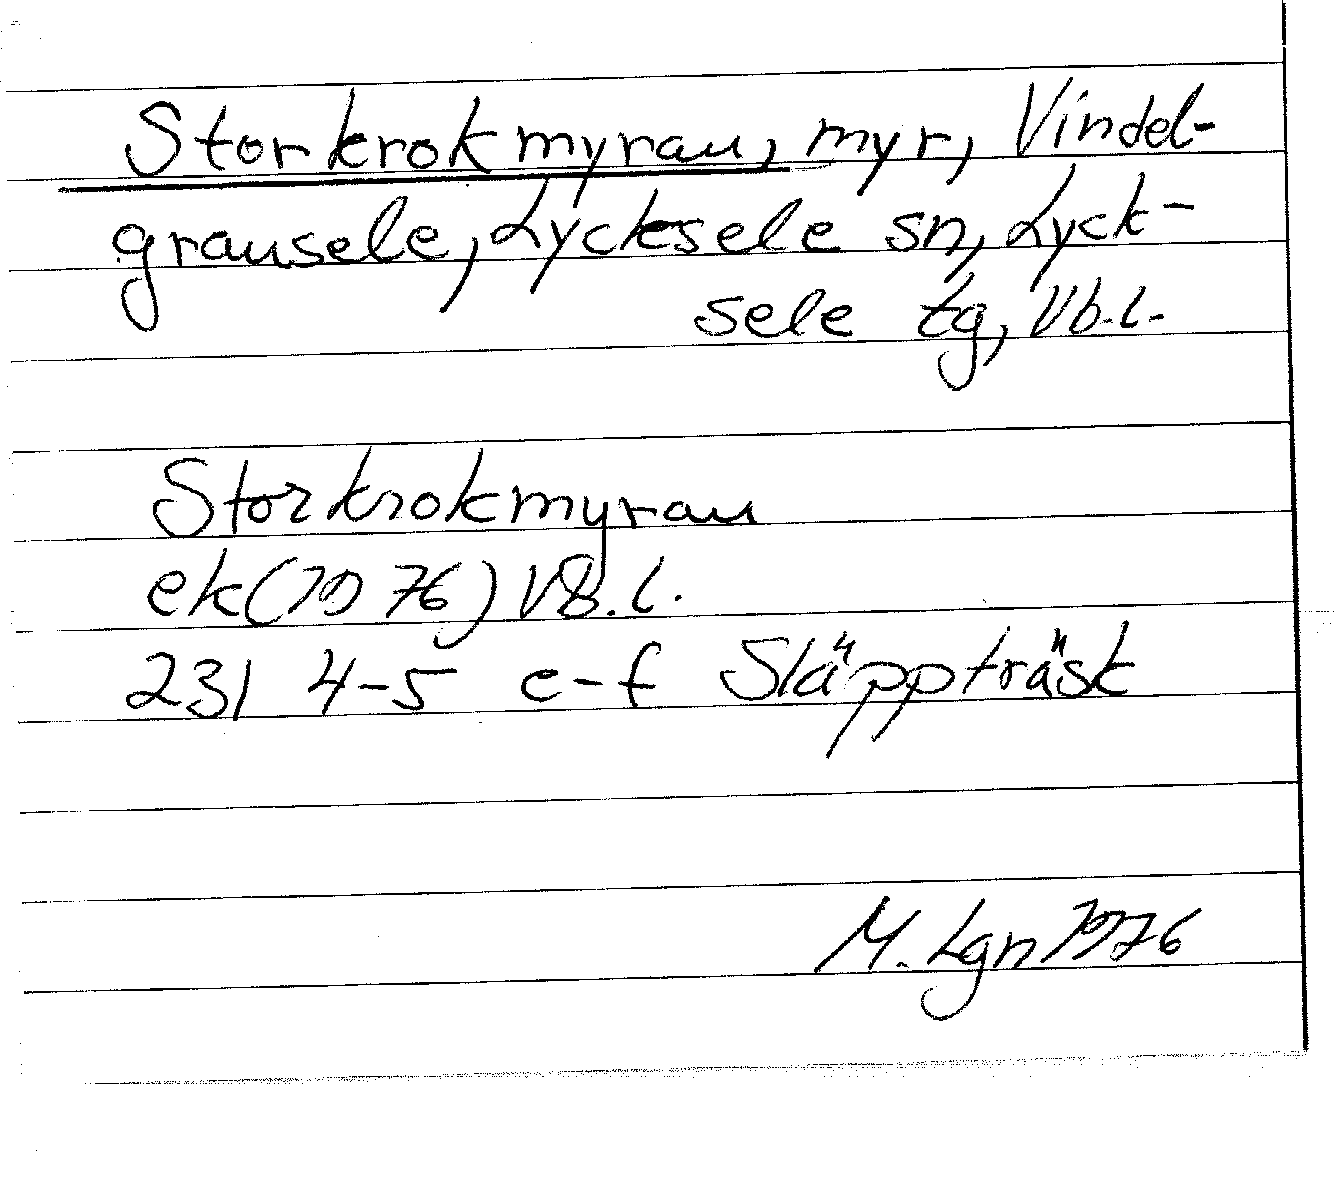 Storkrokmyran, myr, Vindel-
gransele, Lycksele sn, Lyck-
sele tg, Vb.l.
Storkrokmyran
ek(1976) VB.l.
231 4-5 e-f Släppträsk
M. Lgn 1976